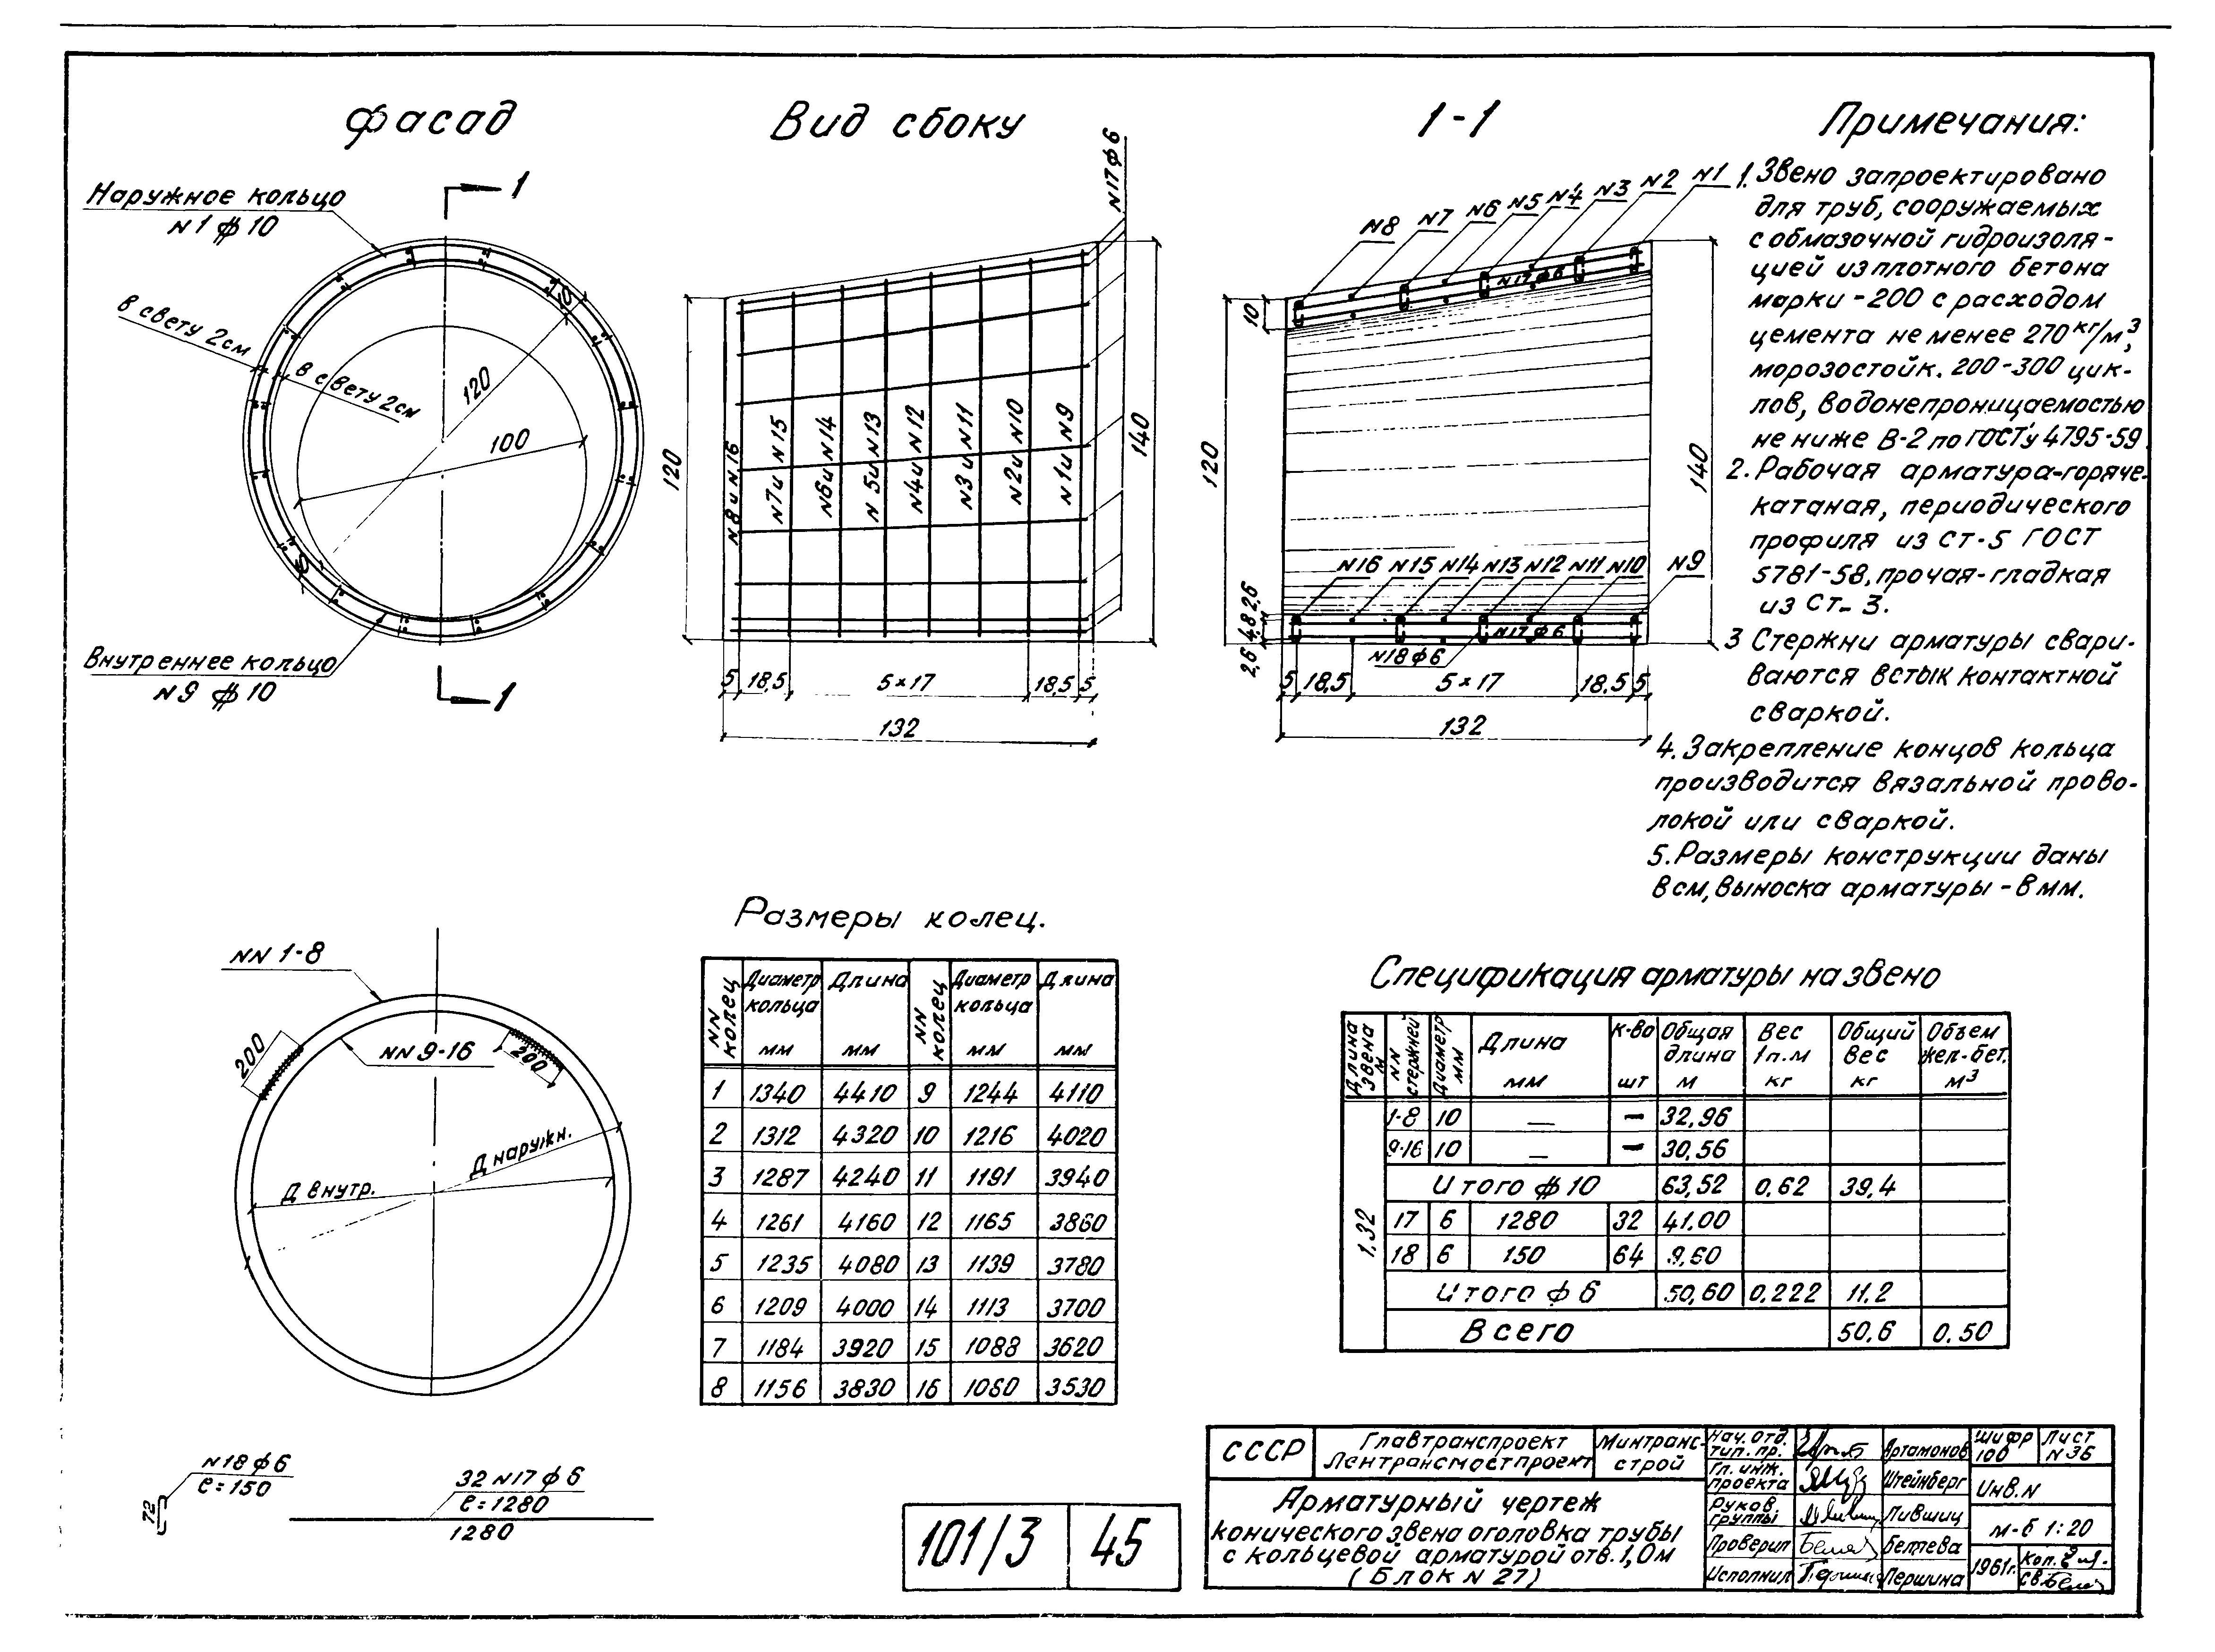 Фасад
Вид сбоку
1-1
Примечания:
Наружное кольцо
N1 ⌀ 10
1
в свету 2см
в свету 2см
120
100
5
5
Внутреннее кольцо
N9 ⌀ 10
1
N17ϕ6
120
140
N8 и N16
N7 и N15
N6 и N14
N5 и N13
N4 и N12
N3 и N11
N2 и N10
N1 и N9
5 18,5 5×17 18,5 5
132
N8 N7 N6 N5 N4 N3 N2 N1
N17ϕ6
10
120
140
N16 N15 N14 N13 N12 N11 N10 N9
N17ϕ6
N18ϕ6
2,6 4,8 2,6
5 18,5 5×17 18,5 5
132
1. Звено запроектировано
для труб, сооружаемых
с обмазочной гидроизоля-
цией из плотного бетона
марки-200 с расходом
цемента не менее 270 кг/м³,
морозостойк. 200-300 цик-
лов, водонепроницаемостью
не ниже В-2 по ГОСТ'у 4795-59.
2. Рабочая арматура-горяче-
катаная, периодического
профиля из Ст-5 ГОСТ
5781-58, прочая-гладкая
из Ст-3.
3 Стержни арматуры свари-
ваются встык контактной
сваркой.
4. Закрепление концов кольца
производится вязальной прово-
локой или сваркой.
5. Размеры конструкции даны
в см, выноска арматуры - в мм.
NN 1-8
200
NN 9-16
200
Д наружн.
Д внутр.
N18ϕ6
ℓ=150
72
32 N17ϕ6
ℓ=1280
1280
Размеры колец.
NN колец Диаметр кольца мм Длина мм NN колец Диаметр кольца мм Длина мм
1 1340 4410 9 1244 4110
2 1312 4320 10 1216 4020
3 1287 4240 11 1191 3940
4 1261 4160 12 1165 3860
5 1235 4080 13 1139 3780
6 1209 4000 14 1113 3700
7 1184 3920 15 1088 3620
8 1156 3830 16 1060 3530
Спецификация арматуры на звено
Длина звена м NN стержней Диаметр мм Длина мм К-во шт Общая длина м Вес 1п.м кг Общий вес кг Объем жел-бет. м³
1,32
1-8 10 — — 32,96
9-16 10 — — 30,56
Итого ⌀ 10 63,52 0,62 39,4
17 6 1280 32 41,00
18 6 150 64 9,60
Итого ϕ 6 50,60 0,222 11,2
Всего 50,6 0,50
101/3 45
СССР
Главтранспроект
Лентрансмостпроект
Минтранс-
строй
Арматурный чертеж
конического звена оголовка трубы
с кольцевой арматурой отв. 1,0м
(Блок N 27)
Нач. отд. тип. пр. Артамонов
Гл. инж. проекта Штейнберг
Руков. группы Лившиц
Проверил Беляева
Исполнил Першина
Шифр 100
Лист N36
Инв. N
М-б 1:20
1961г.
Коп.
Св.